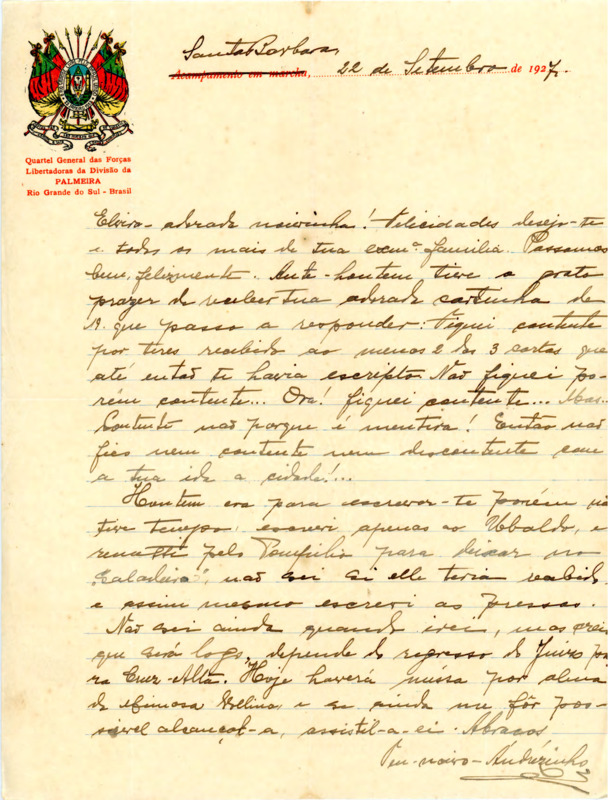 Santa Barbara,
Acampamento em marcha, 22 de Setembro de 1927.
Quartel General das Forças
Libertadoras da Divisão da
PALMEIRA
Rio Grande do Sul - Brasil
Elvira - adorada noivinha! Felicidades desejo-te
e todos os mais de tua exmª familia. Passamos
bem, felizmente. Ante-hontem tive o grato
prazer de receber tua adorada cartinha de
19 que passo a responder: Fiquei contente
por teres recebido ao menos 2 das 3 cartas que
até então te havia escripto. Não fiquei po-
rém contente... Ora! fiquei contente... Mas...
Contente não porque é mentira! Então não
fico nem contente nem descontente com
a tua ida a cidade!...
Hontem era para escrever-te porém não
tive tempo; escrevi apenas ao Ubaldo, e
remetti pelo Pompilio para deixar no
"Saladeiro", não sei si elle teria recebido
e assim mesmo escrevi as pressas.
Não sei ainda quando irei, mas creio
que será logo, depende do regresso do Juizo pa-
ra Cruz-Alta. Hoje haverá missa por alma
da Mimosa e se ainda me fôr pos-
sivel alcançal-a, assistil-a-ei. Abraços
Teu-noivo-Andrézinho